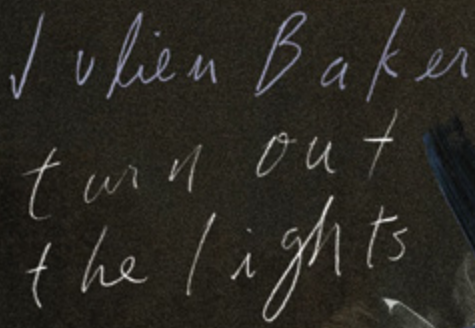 Julien Baker
turn out
the lights